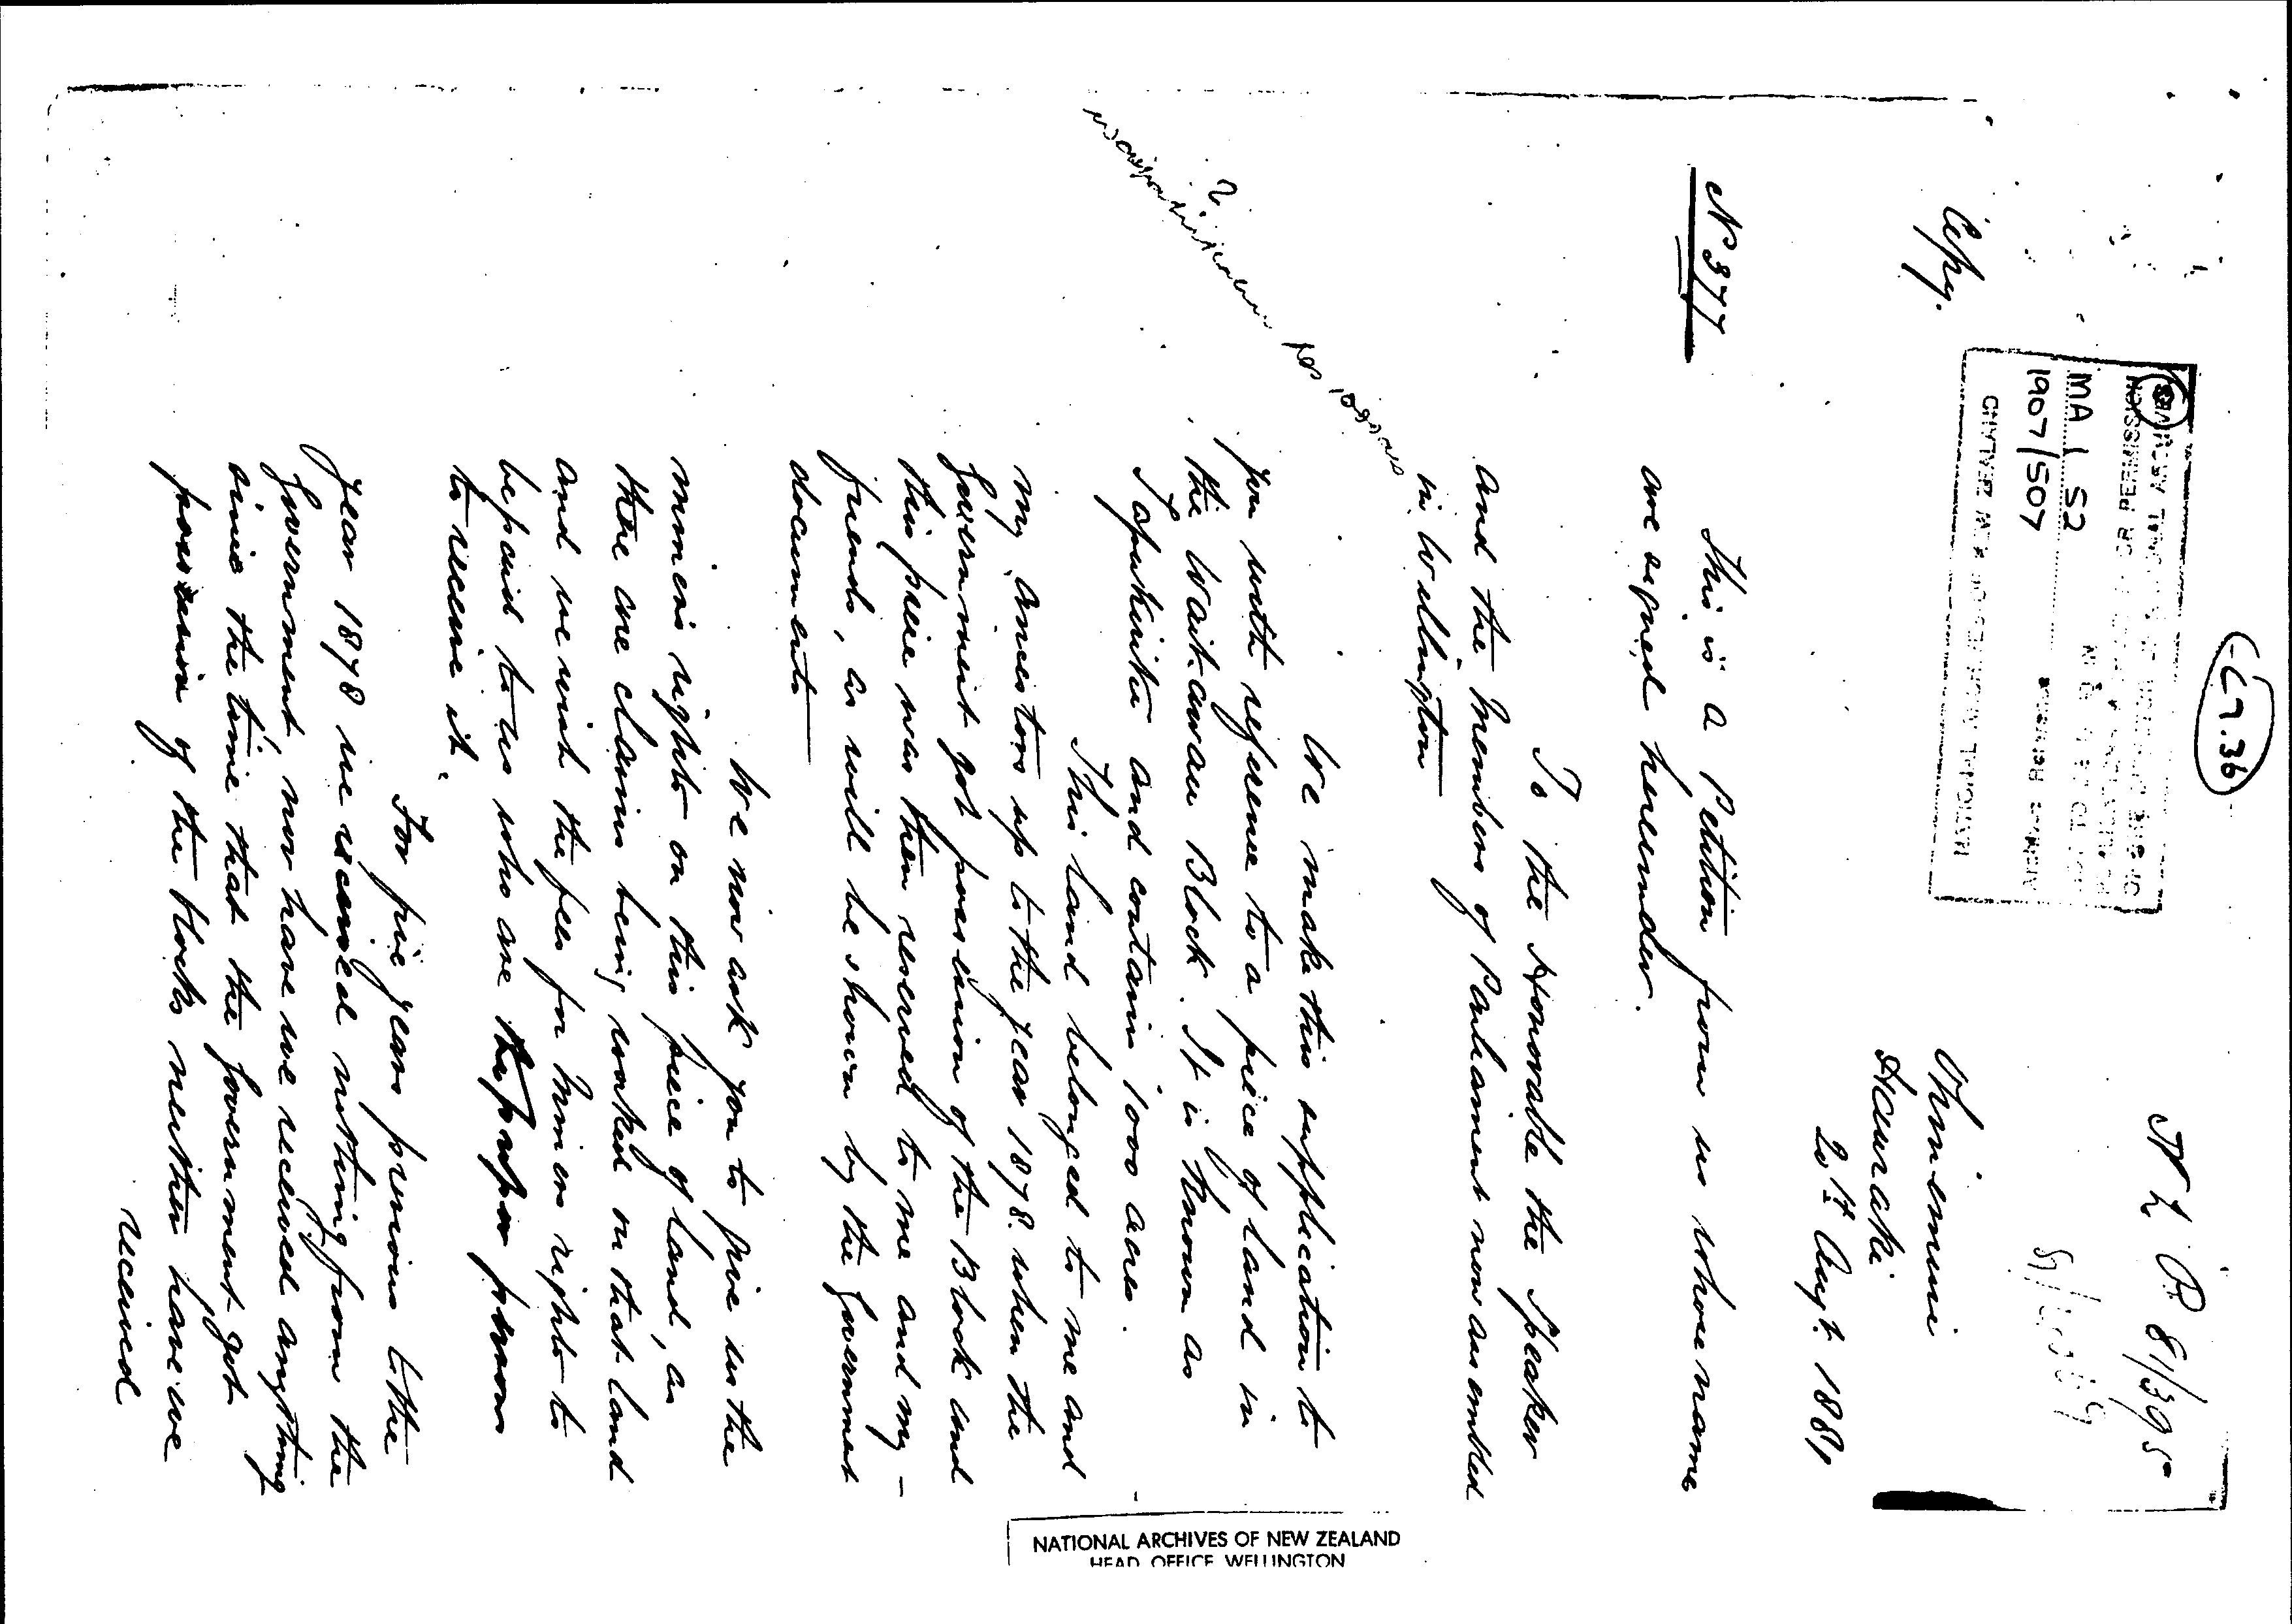 C7.36
N L P 81/395
Copy.
MA 1 S2
1907/507
NATIONAL ARCHIVES OF NEW ZEALAND
Ohinemuri
Hauraki
20th Augt. 1881
N 377
This is a Petition from us whose name
are signed hereunder.
To the Honorable the Speaker
and the Members of Parliament now assembled
in Wellington
We make this supplication to
you with reference to a piece of land in
the Waikawau Block. It is known as
and contains 1000 acres.
This land belonged to me and
my ancestors up to the year 1878. when the
Government got possession of the Block and
this piece was then reserved to me and my -
friends, as will be shown by the Government
documents
We now ask you to give us the
miners rights on this piece of land, as
there are claims being worked on that land
and we wish the fees for miners rights to
be paid to us who are the proper persons
to receive it.
For five years previous to the
year 1878 we received nothing from the
Government, nor have we received anything
since the time that the Government got
possession of the blocks neither have we
received
NATIONAL ARCHIVES OF NEW ZEALAND
HEAD OFFICE WELLINGTON